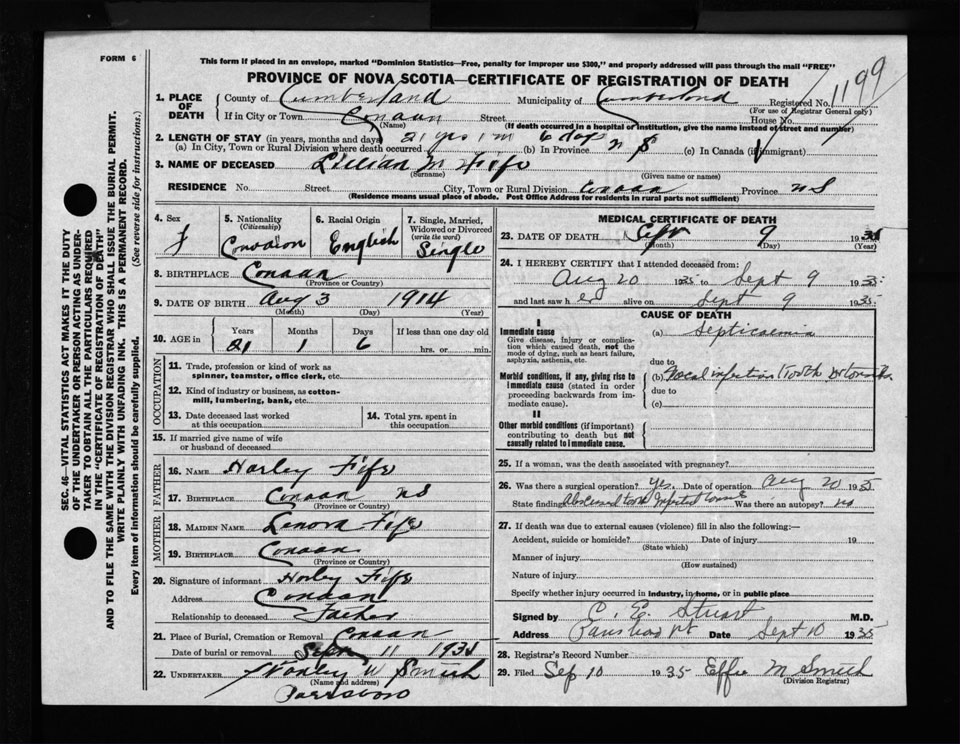 FORM 6
This form if placed in an envelope, marked "Dominion Statistics—Free, penalty for improper use $300," and properly addressed will pass through the mail "FREE"
PROVINCE OF NOVA SCOTIA—CERTIFICATE OF REGISTRATION OF DEATH
1199
1. PLACE OF DEATH
County of Cumberland Municipality of Cumberland Registered No.
(For use of Registrar General only)
If in City or Town Conaan Street House No.
(Name) (If death occurred in a hospital or institution, give the name instead of street and number)
2. LENGTH OF STAY (in years, months and days) 21 yrs 1 m 6 days
(a) In City, Town or Rural Division where death occurred (b) In Province N S (c) In Canada (if immigrant)
3. NAME OF DECEASED Lillian M Fife
(Surname) (Given name or names)
RESIDENCE No. Street City, Town or Rural Division Conaan Province NS
(Residence means usual place of abode. Post Office Address for residents in rural parts not sufficient)
4. Sex F
5. Nationality (Citizenship)
6. Racial Origin English
7. Single, Married, Widowed or Divorced (write the word) Single
8. BIRTHPLACE Conaan
(Province or Country)
9. DATE OF BIRTH Aug 3 1914
(Month) (Day) (Year)
10. AGE in Years Months Days If less than one day old
21 1 6 hrs. or min.
OCCUPATION
11. Trade, profession or kind of work as spinner, teamster, office clerk, etc.
12. Kind of industry or business, as cotton-mill, lumbering, bank, etc.
13. Date deceased last worked at this occupation
14. Total yrs. spent in this occupation
15. If married give name of wife or husband of deceased
FATHER
16. NAME Harley Fife
17. BIRTHPLACE Conaan NS
(Province or Country)
MOTHER
18. MAIDEN NAME Lenora Fife
19. BIRTHPLACE Conaan
(Province or Country)
20. Signature of informant Harley Fife
Address Conaan
Relationship to deceased Father
21. Place of Burial, Cremation or Removal Conaan
Date of burial or removal Sept 11 1935
22. UNDERTAKER W Smith
(Name and address)
Parrsboro
MEDICAL CERTIFICATE OF DEATH
23. DATE OF DEATH Sept 9 1935
(Month) (Day) (Year)
24. I HEREBY CERTIFY that I attended deceased from:
Aug 20 1935 to Sept 9 1935
and last saw her alive on Sept 9 1935
CAUSE OF DEATH
I
Immediate cause (a) Septicaemia
Give disease, injury or complication which caused death, not the mode of dying, such as heart failure, asphyxia, asthenia, etc.
due to
Morbid conditions, if any, giving rise to immediate cause (stated in order proceeding backwards from immediate cause).
(b) Focal infection Tooth
due to
(c)
II
Other morbid conditions (if important) contributing to death but not causally related to immediate cause.
25. If a woman, was the death associated with pregnancy?
26. Was there a surgical operation? yes. Date of operation Aug 20 1935
State findings Abscessed tooth Infected Was there an autopsy? no
27. If death was due to external causes (violence) fill in also the following:—
Accident, suicide or homicide? Date of injury 19
(State which)
Manner of injury
(How sustained)
Nature of injury
Specify whether injury occurred in industry, in home, or in public place
Signed by C. E. Stuart M.D.
Address Date Sept 10 1935
28. Registrar's Record Number
29. Filed Sep 10 1935 Effie M Smith
(Division Registrar)
SEC. 46—VITAL STATISTICS ACT MAKES IT THE DUTY
OF THE UNDERTAKER OR PERSON ACTING AS UNDER-
TAKER TO OBTAIN ALL THE PARTICULARS REQUIRED
IN THE "CERTIFICATE OF REGISTRATION OF DEATH"
AND TO FILE THE SAME WITH THE DIVISION REGISTRAR WHO SHALL ISSUE THE BURIAL PERMIT.
WRITE PLAINLY WITH UNFADING INK. THIS IS A PERMANENT RECORD.
Every item of information should be carefully supplied. (See reverse side for instructions.)